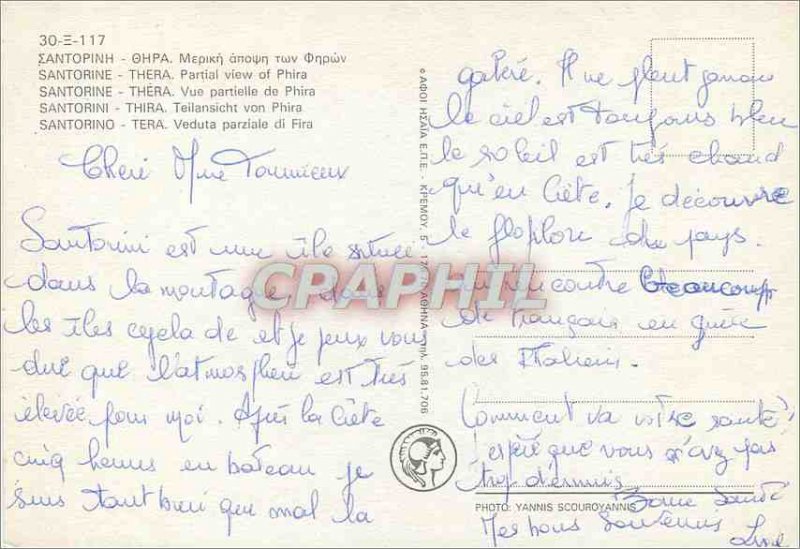 30-Ξ-117
ΣΑΝΤΟΡΙΝΗ - ΘΗΡΑ. Μερική άποψη των Φηρών
SANTORINE - THERA. Partial view of Phira
SANTORINE - THÉRA. Vue partielle de Phira
SANTORINI - THIRA. Teilansicht von Phira
SANTORINO - TERA. Veduta parziale di Fira
Chère Mme
Santorini est une île située
dans la montagne dans
les îles cyclade et je peux vous
dire que l'atmosphère est très
élevée pour moi. Après la Crète
cinq heures en bateau je
suis tant bien que mal la
galère. Il ne pleut jamais
le ciel est toujours bleu
le soleil est très chaud
qu'en Crète. Je découvre
le floplore du pays.
on rencontre beaucoup
de français en grèce
des Italiens.
Comment va votre santé,
j'espère que vous n'avez pas
trop d'ennuis
Bonne santé
Mes bons souvenirs
© ΑΦΟΙ ΗΣΑΪΑ Ε.Π.Ε. - ΚΡΕΜΟΥ. 5 - ΑΘΗΝΑ - Τηλ. 95.81.706
PHOTO: YANNIS SCOUROYANNIS
CPAPHIL